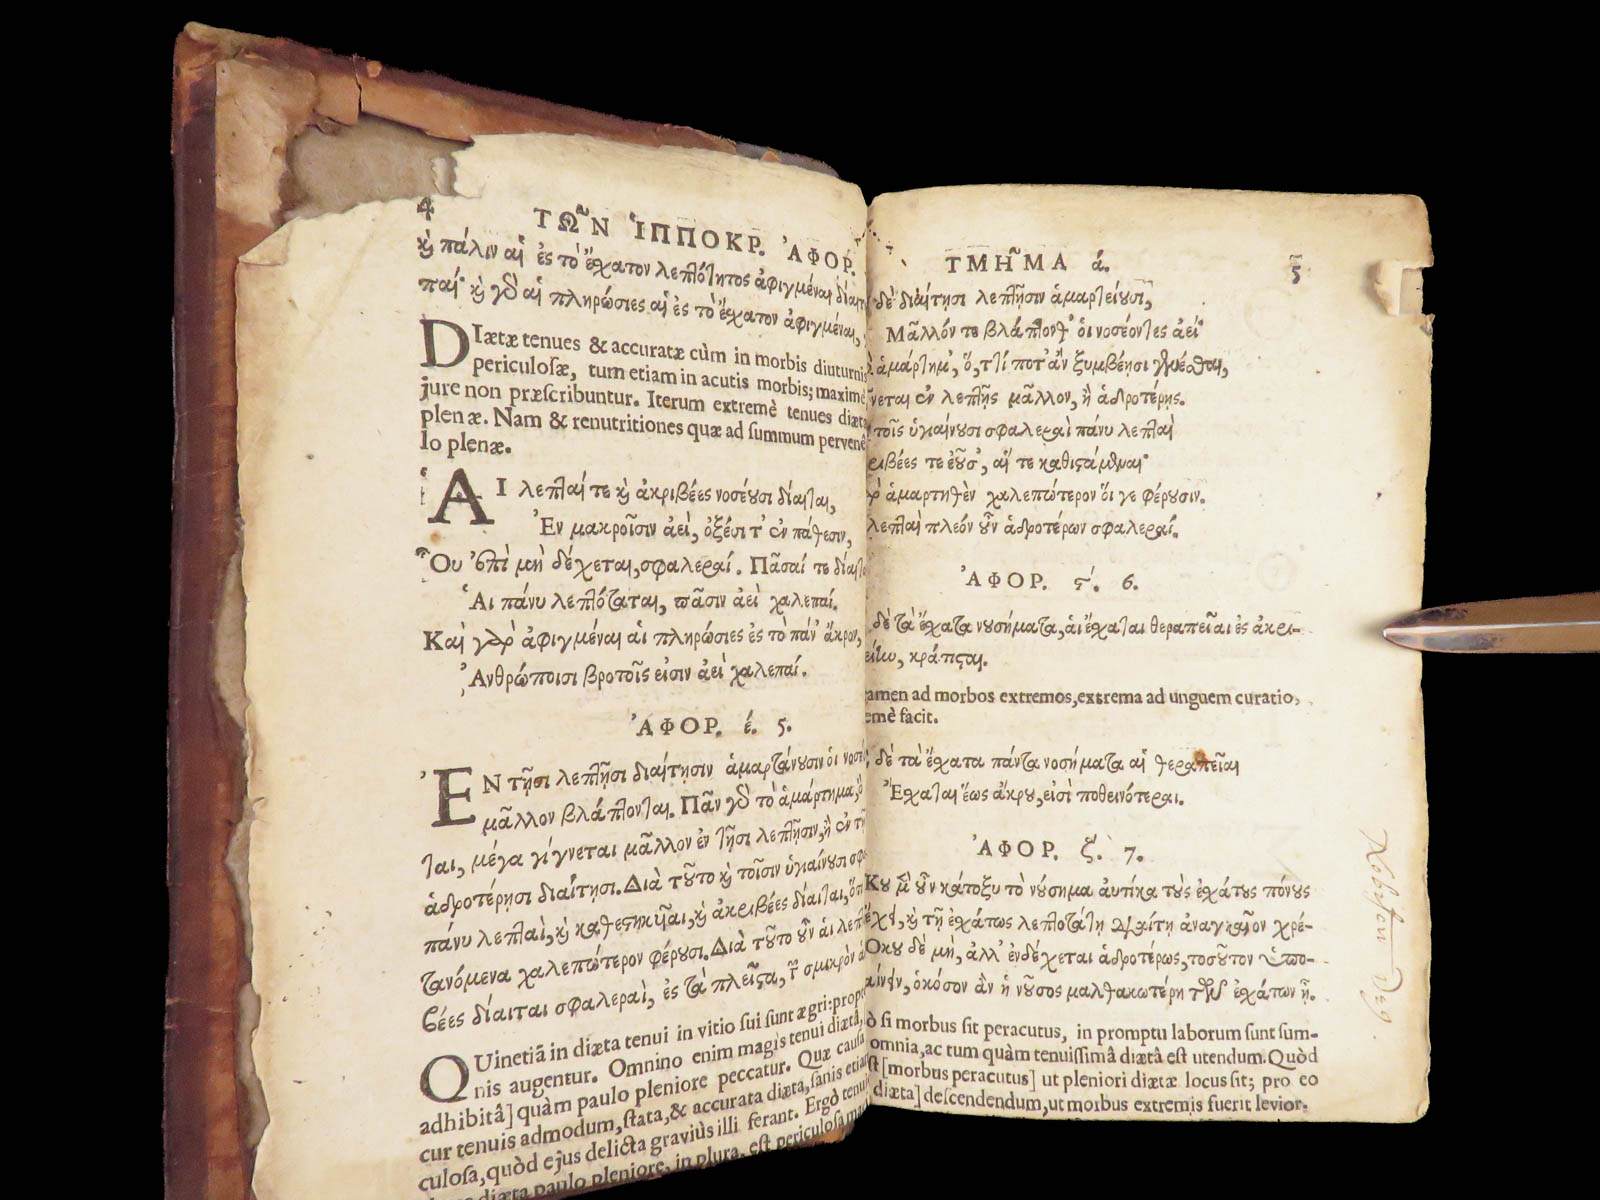 4 ΤΩ͂Ν ἹΠΠΟΚΡ. ἈΦΟΡ.
ϗ πάλιν αἱ ἐς τὸ ἔχατον λεπτότητος ἀφιγμέναι δίαιται
παί· ϗ γὸ αἱ πληρώσιες αἱ ἐς τὸ ἔχατον ἀφιγμέναι,
DIætæ tenues & accuratæ cùm in morbis diuturnis
periculosæ, tum etiam in acutis morbis; maximè
jure non præscribuntur. Iterum extremè tenues diæta
plenæ. Nam & renutritiones quæ ad summum pervenê
lo plenæ.
ἉΙ λεπταί τε ϗ ἀκριβέες νοσέουσι δίαιται,
Ἐν μακροῖσιν ἀεὶ, ὀξέσι τ' ἐν πάθεσιν,
Οὗ ἐπὶ μὴ δέχεται, σφαλεραί. Πᾶσαί τε δίαιτ
Ἁι πάνυ λεπτόταται, πᾶσιν ἀεὶ χαλεπαί.
Καὶ γὰρ ἀφιγμέναι αἱ πληρώσιες ἐς τὸ πάν' ἄκρον,
Ἀνθρώποισι βροτοῖς εἰσιν ἀεὶ χαλεπαί.
ἈΦΟΡ. έ. 5.
ἘΝ τῇσι λεπτῇσι διαίτῃσιν ἁμαρτάνουσιν οἱ νοσέ
μᾶλλον βλάπτονται. Πᾶν γὸ τὸ ἁμάρτημα, ὃ
ται, μέγα γίγνεται μᾶλλον ἐν τῇσι λεπτῇσιν, ἢ ἐν τῇ
ἁδροτέρῃσι διαίτῃσι. Διὰ τοῦτο ϗ τοῖσιν ὑγιαίνουσι σφα
πάνυ λεπταὶ, ϗ καθεστηκυῖαι, ϗ ἀκριβέες δίαιται, ὅτι
τανόμενα χαλεπώτερον φέρουσι. Διὰ τοῦτο οὖν αἱ λεπτ
βέες δίαιται σφαλεραὶ, ἐς τὰ πλεῖστα, τ σμικρὸν ἁ
QUinetiã in diæta tenui in vitio sui sunt ægri: propt
nis augentur. Omnino enim magis tenui diætâ,
adhibitâ] quàm paulo pleniore peccatur. Quæ causa
cur tenuis admodum, stata, & accurata diæta, sanis etia
culosa, quòd ejus delicta graviùs illi ferant. Ergò tenui
diæta paulo pleniore, in plura, est periculosa ma
ΤΜΗ͂ΜΑ ά. 5
δὲ διαίτῃσι λεπτῇσιν ἁμαρτείουσι,
Μᾶλλόν τε βλάπτονθ' οἱ νοσέοντες ἀεί·
ἁμάρτημ', ὅ,τί ποτ' ἂν ξυμβέῃσι γενέσθαι,
νεται ἐν λεπτῇς μᾶλλον, ἢ ἁδροτέρῃς.
τοῖς ὑγιαίνουσι σφαλεραὶ πάνυ λεπταὶ
ριβέες τε ἐοῦσ', αἵ τε καθιστάμεναι·
ἁμαρτηθὲν χαλεπώτερον οἵ γε φέρουσιν.
λεπταὶ πλεόν οὖν ἁδροτέρων σφαλεραί.
ἈΦΟΡ. ϛ'. 6.
δὲ τὰ ἔχατα νουσήματα, αἱ ἔχαται θεραπεῖαι ἐς ἀκρι-
είην, κράτισται.
amen ad morbos extremos, extrema ad unguem curatio,
emè facit.
δὲ τὰ ἔχατα πάντα νοσήματα αἱ θεραπεῖαι
Ἔχαται ἕως ἄκρου, εἰσὶ ποθεινότεραι.
ἈΦΟΡ. ζ. 7.
Κου μ οὖν κάτοξυ τὸ νούσημα αὐτίκα τοὺς ἐχάτους πόνους
ἔχει, ϗ τῇ ἐχάτως λεπτοτάτῃ διαίτῃ ἀναγκαῖον χρέ-
Ὅκου δὲ μὴ, ἀλλ' ἐνδέχεται ἁδροτέρως, τοσοῦτον ὑπο-
αίνειν, ὁκόσον ἂν ἡ νοῦσος μαλθακωτέρη τῶν ἐχάτων ᾖ.
ò si morbus sit peracutus, in promptu laborum sunt sum-
omnia, ac tum quàm tenuissimâ diætâ est utendum. Quòd
st [morbus peracutus] ut pleniori diætæ locus sit; pro eo
diæta] descendendum, ut morbus extremis fuerit levior.